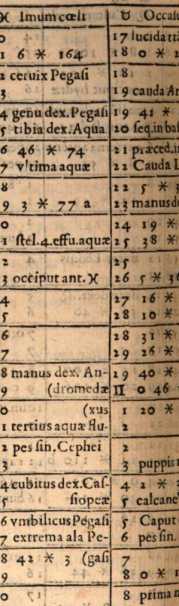 ♓ Imum cœli | ♉ Occasu
0 | 17 lucida tri
1 6 ✶ 164 | 18 0 ✶ 1
2 ceruix Pegasi | 18
3 | 19 cauda Ar
4 genu dex. Pegasi | 19 41 ✶
5 tibia dex. Aqua | 20 seq. in bas
6 46 ✶ 74 | 21 præced. in
7 vltima aquæ | 22 Cauda L
8 | 22 5 ✶ 3
9 3 ✶ 77 a | 23 manus du
0 | 24 19 ✶
1 stel. 4. effu. aquæ | 25 38 ✶
2 | 25
3 occiput ant. ♓ | 26 5 ✶ 36
4 | 27 16 ✶
5 | 28 10 ✶
6 | 28 31 ✶
7 | 29 26 ✶
8 manus dex. An- | 29 40 ✶
9 (dromedæ | ♊ 0 46
0 (xus | 1 20 ✶
1 tertius aquæ flu- | 2
2 pes sin. Cephei | 2
3 | 3 puppis
4 cubitus dex. Cas- | 4 2 ✶
5 siopeæ | 5 calcane
6 vmbilicus Pegasi | 5 Caput
7 extrema ala Pe- | 6 pes sin.
8 42 ✶ 3 (gasi | 7
9 | 8 0 ✶
0 | 8 prima